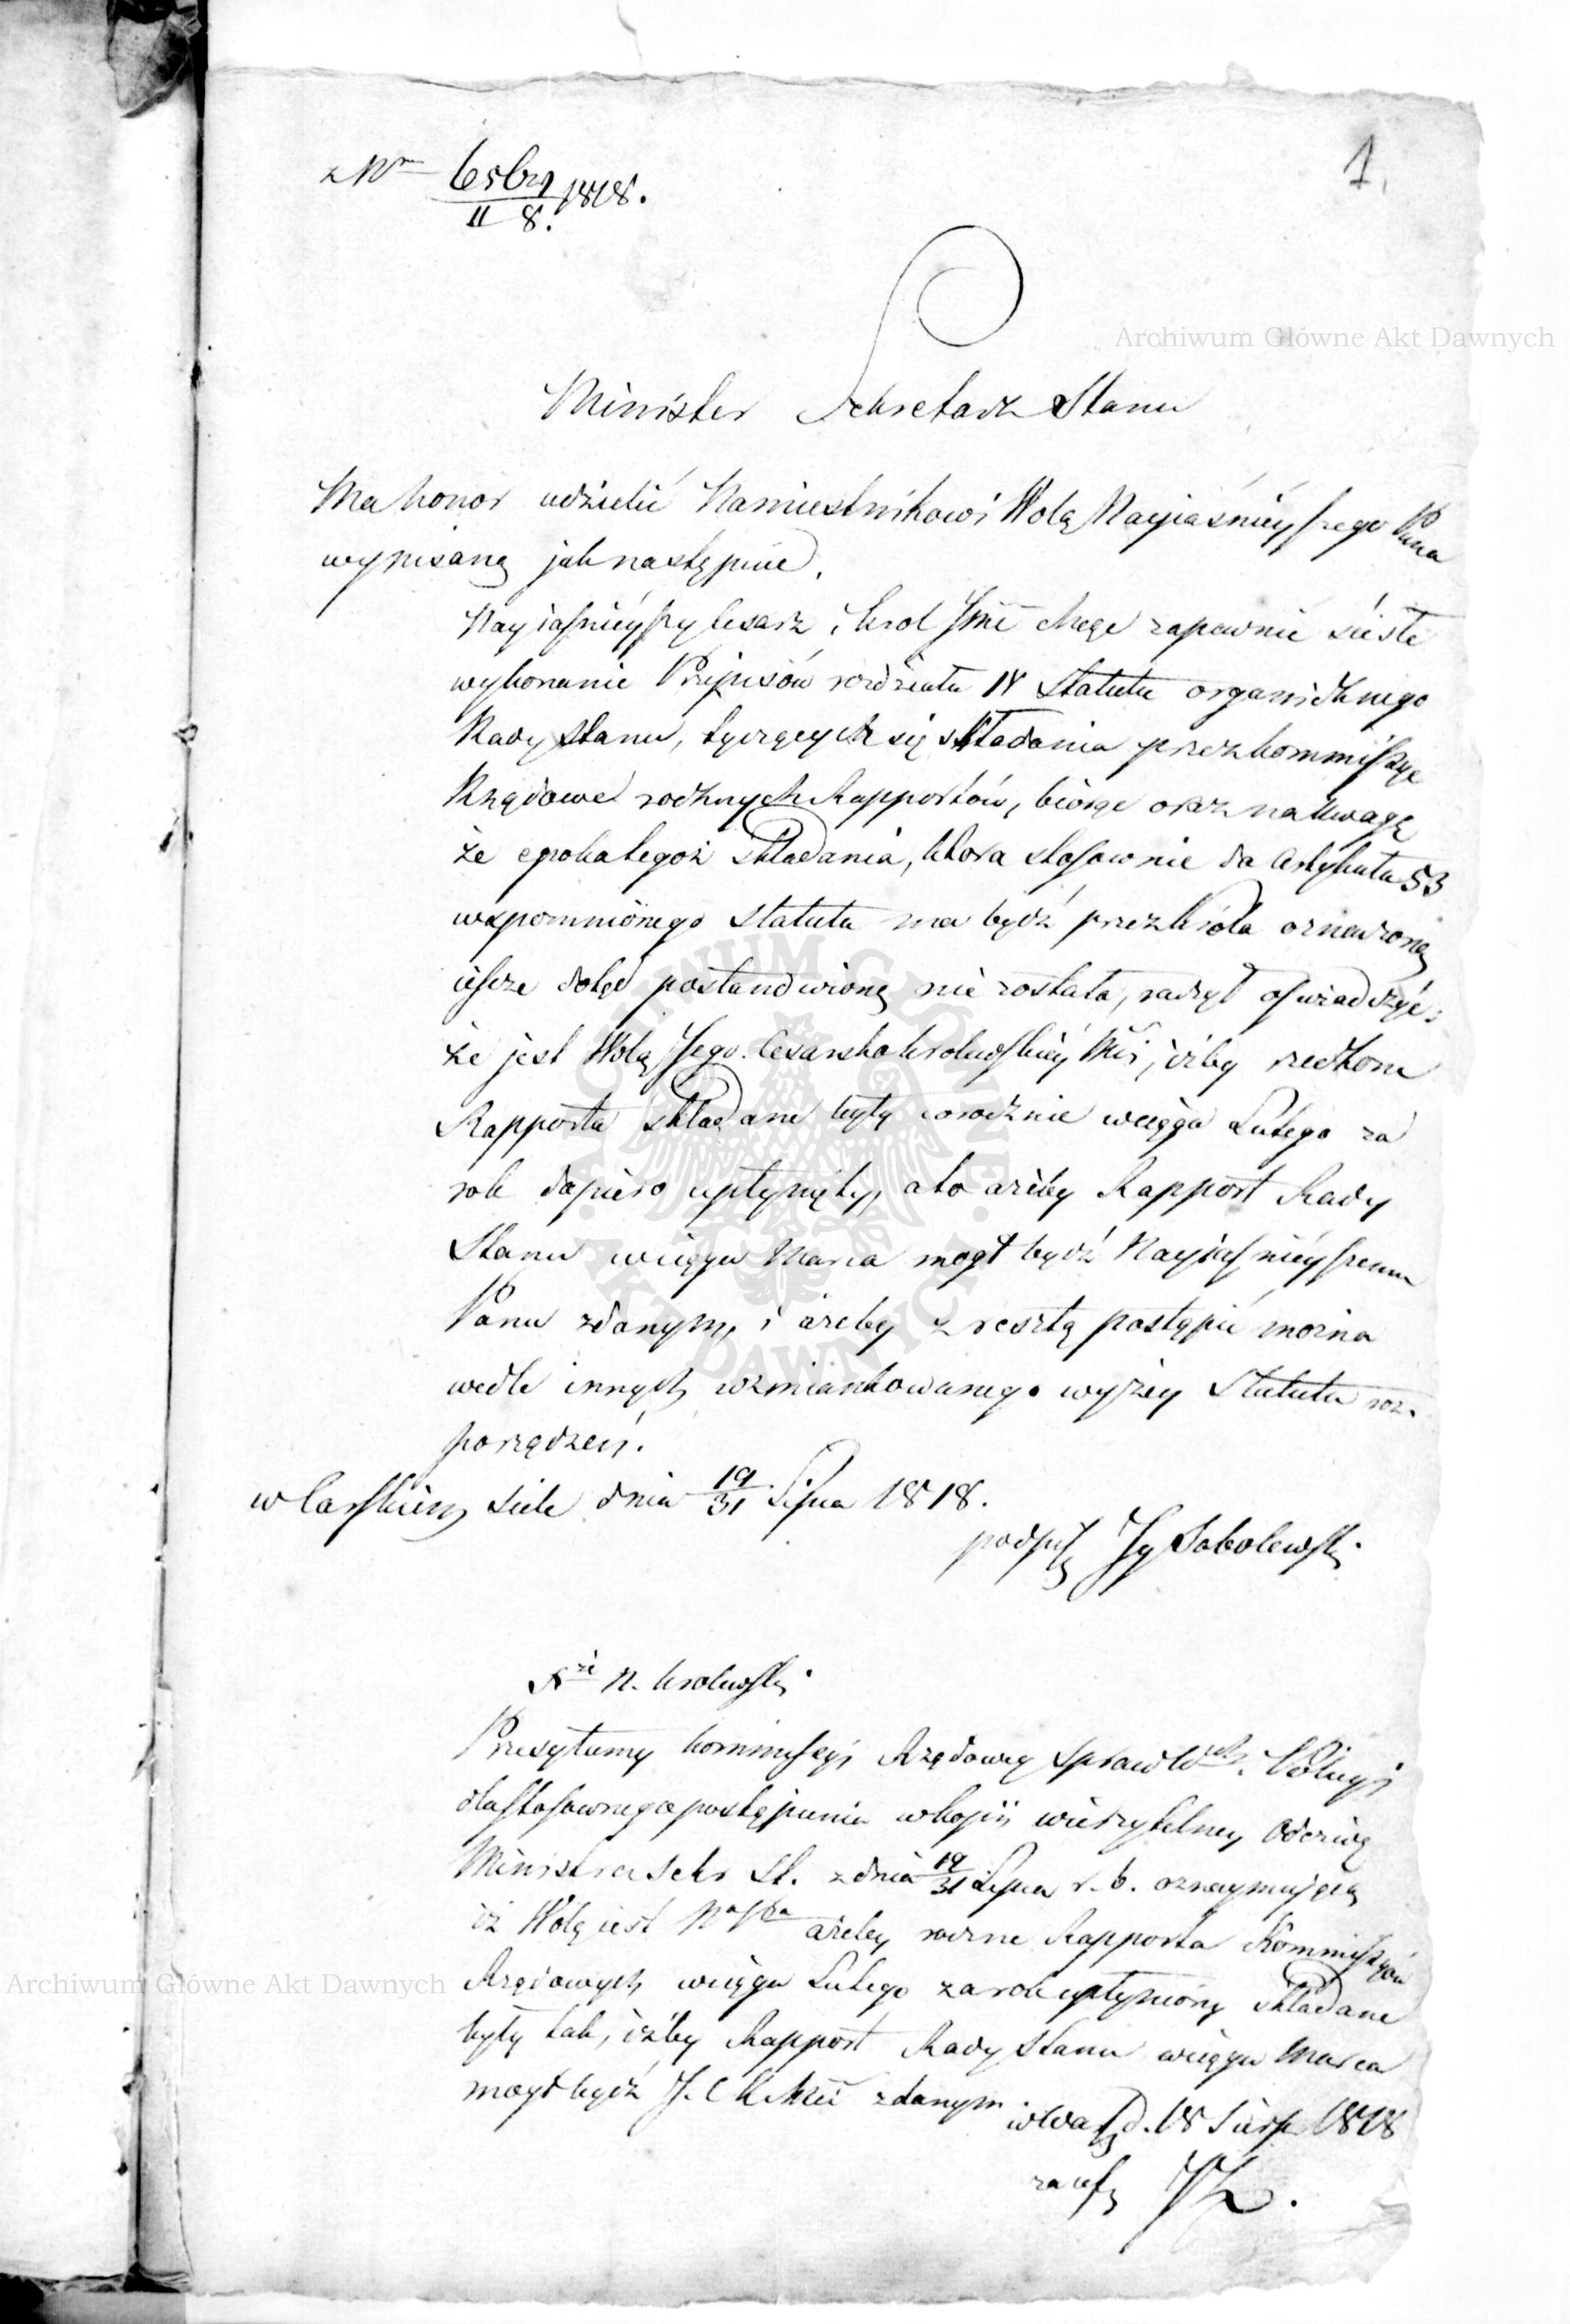 1.
1818.
II 8.
Archiwum Główne Akt Dawnych
Minister Sekretarz Stanu
Ma honor udzielić Namiestnikowi Wolą Nayiaśnieyszego Pana
wypisaną jak następuie.
Nayiaśnieyszy Cesarz i Krol Jmć chcąc zapewnić ścisłe
wykonanie Przepisów rozdziału IV Statutu organicznego
Rady Stanu, tyczących się składania przez kommissye
Rządowe rocznych Rapportów, biorąc oraz na uwagę
że epoka tegoż składania, ktora stosownie do Artykułu 53
wspomnionego Statutu ma bydź przez Króla oznaczoną
ieszcze dotąd postanowioną nie została, raczył oświadczyć:
że jest Wolą Jego Cesarsko Krolewskiéy Mći, iżby rzeczone
Rapporta składane były corocznie w ciągu Lutego za
rok dopiero upłynięty, a to ażeby Rapport Rady
Stanu w ciągu Marca mogł bydź Nayiaśnieyszemu
Panu zdanym, i ażeby z resztą postąpić można
wedle innych wzmiankowanego wyżéy Statutu roz-
porządzeń.
w Carskiem Siele dnia 19/31 Lipca 1818.
podpis Ig Sobolewski
N. Krolewski
Przesyłamy kommissyi Rządowey Sprawdl.
dla stosownego postąpienia w kopii wierzytelney Odezwę
Ministra Sekr St. z dnia 19/31 Lipca r. b. oznaymuiącą
iż Wolą iest Na Pa ażeby roczne Rapporta Kommissyów
Rządowych w ciągu Lutego za rok upłyniony składane
Archiwum Główne Akt Dawnych
były tak, iżby Rapport Rady Stanu w ciągu Marca
mogł bydź J. C K Mći zdanym.
w Wars d. 18 Sierp 1818